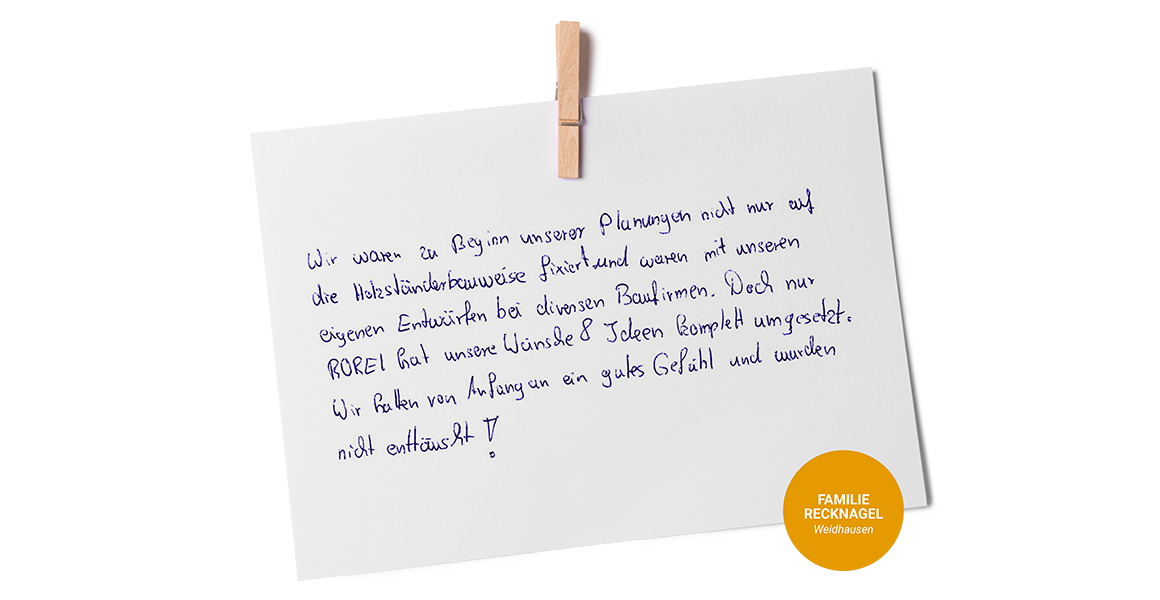 Wir waren zu Beginn unserer Planungen nicht nur auf
die Holzständerbauweise fixiert und waren mit unseren
eigenen Entwürfen bei diversen Baufirmen. Doch nur
ROREI hat unsere Wünsche & Ideen komplett umgesetzt.
Wir hatten von Anfang an ein gutes Gefühl und wurden
nicht enttäuscht!
FAMILIE
RECKNAGEL
Weidhausen